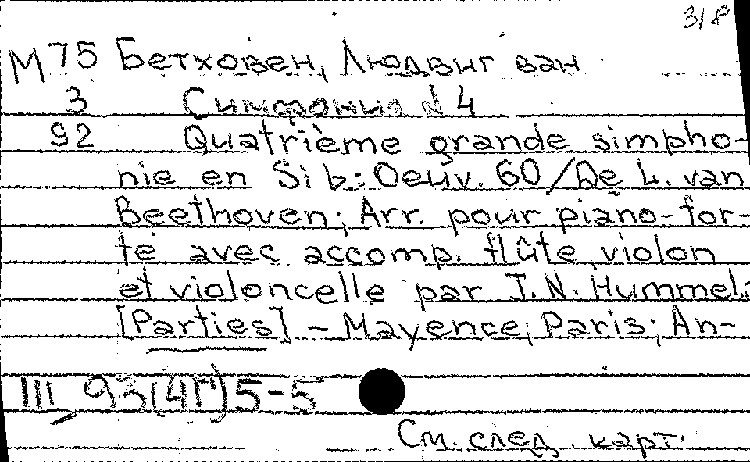 318
М75 Бетховен, Людвиг ван
3 Симфония N 4
92 Quatrième grande simpho-
nie en Si b: Oeuv. 60/De L. van
Beethoven; Arr. pour piano-for-
te avec accomp. flûte, violon
et violoncelle par J. N. Hummel:
[Parties] - Mayence; Paris; An-
III 93(4Г)5-5
См. след. карт.